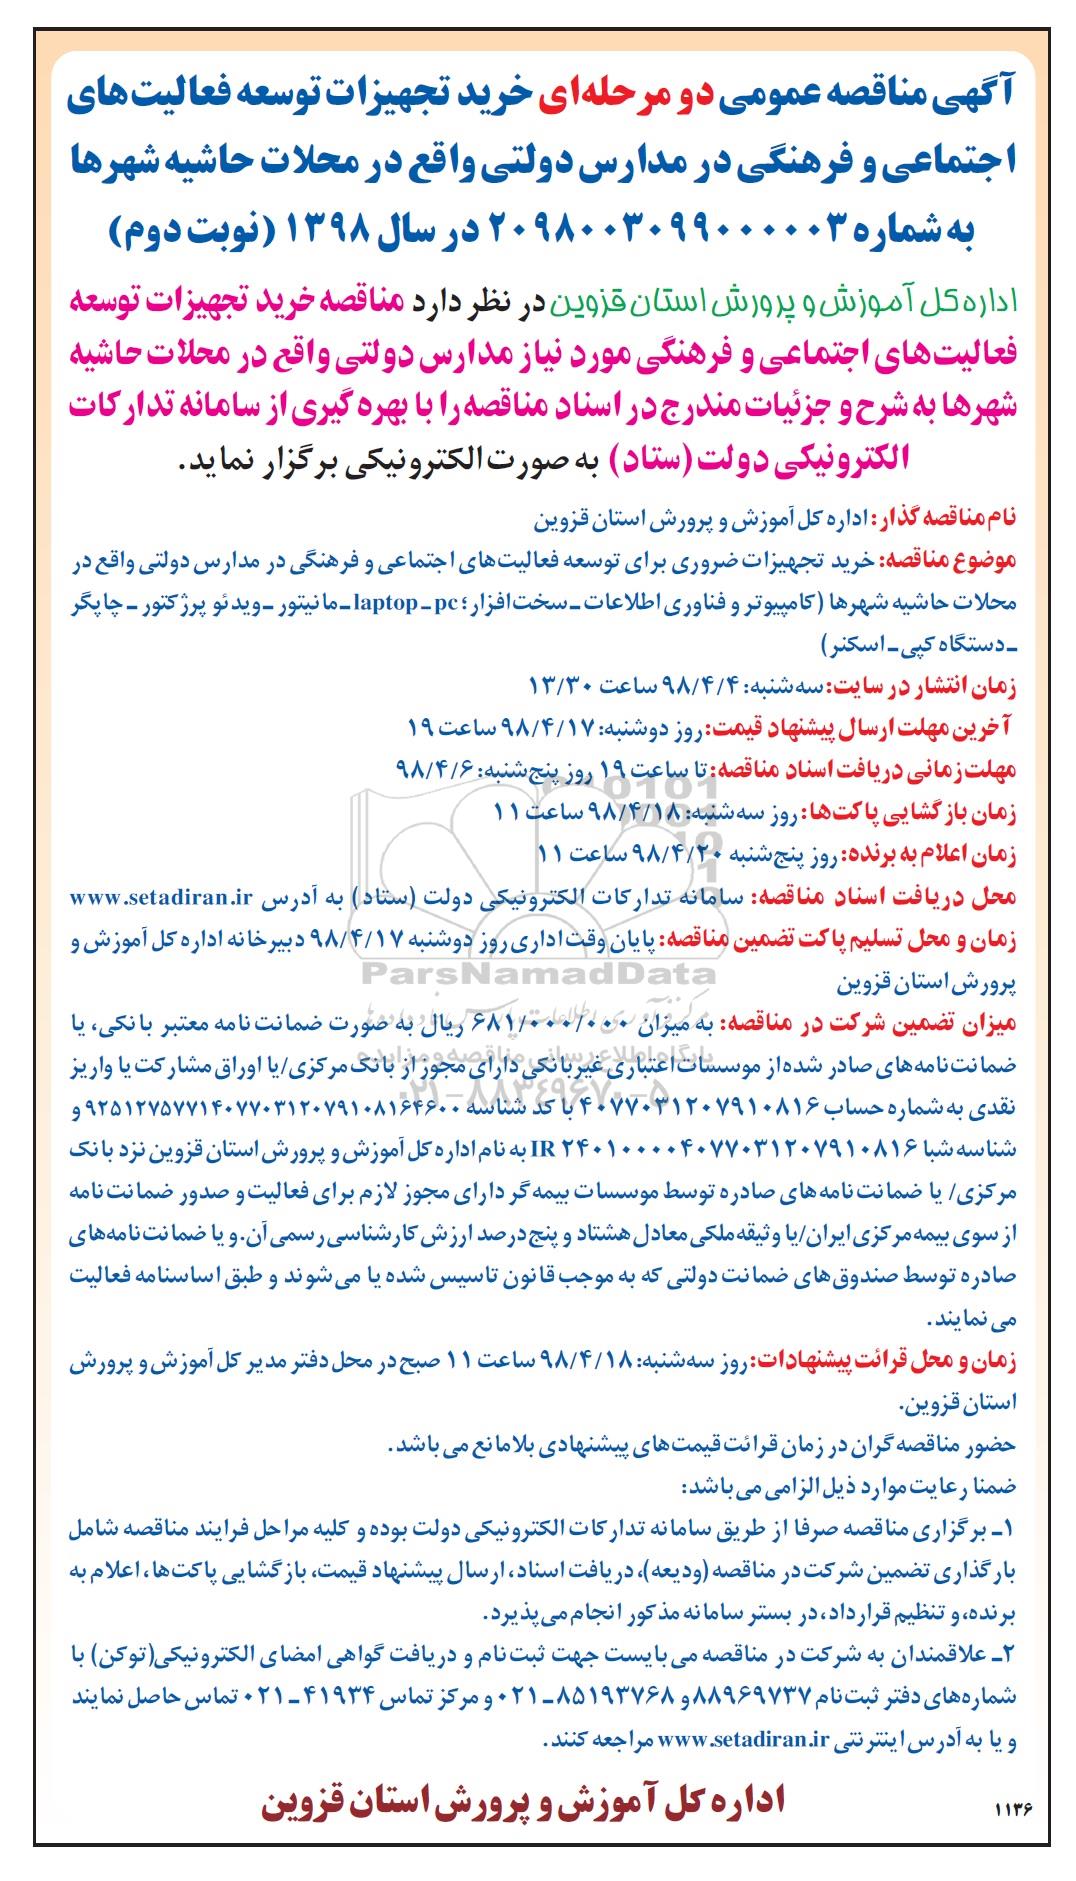 آگهی مناقصه عمومی دو مرحله‌ای خرید تجهیزات توسعه فعالیت‌های
اجتماعی و فرهنگی در مدارس دولتی واقع در محلات حاشیه شهرها
به شماره ۲۰۹۸۰۰۳۰۹۹۰۰۰۰۰۳ در سال ۱۳۹۸ (نوبت دوم)
اداره کل آموزش و پرورش استان قزوین در نظر دارد مناقصه خرید تجهیزات توسعه
فعالیت‌های اجتماعی و فرهنگی مورد نیاز مدارس دولتی واقع در محلات حاشیه
شهرها به شرح و جزئیات مندرج در اسناد مناقصه را با بهره گیری از سامانه تدارکات
الکترونیکی دولت (ستاد) به صورت الکترونیکی برگزار نماید.
نام مناقصه گذار: اداره کل آموزش و پرورش استان قزوین
موضوع مناقصه: خرید تجهیزات ضروری برای توسعه فعالیت‌های اجتماعی و فرهنگی در مدارس دولتی واقع در
محلات حاشیه شهرها (کامپیوتر و فناوری اطلاعات ـ سخت‌افزار؛ laptop ـ pc ـ مانیتور ـ ویدئو پرژکتور ـ چاپگر
ـ دستگاه کپی ـ اسکنر)
زمان انتشار در سایت: سه‌شنبه: ۹۸/۴/۴ ساعت ۱۳/۳۰
آخرین مهلت ارسال پیشنهاد قیمت: روز دوشنبه: ۹۸/۴/۱۷ ساعت ۱۹
مهلت زمانی دریافت اسناد مناقصه: تا ساعت ۱۹ روز پنج‌شنبه: ۹۸/۴/۶
زمان بازگشایی پاکت‌ها: روز سه‌شنبه: ۹۸/۴/۱۸ ساعت ۱۱
زمان اعلام به برنده: روز پنج‌شنبه ۹۸/۴/۲۰ ساعت ۱۱
محل دریافت اسناد مناقصه: سامانه تدارکات الکترونیکی دولت (ستاد) به آدرس www.setadiran.ir
زمان و محل تسلیم پاکت تضمین مناقصه: پایان وقت اداری روز دوشنبه ۹۸/۴/۱۷ دبیرخانه اداره کل آموزش و
پرورش استان قزوین
ParsNamadData
میزان تضمین شرکت در مناقصه: به میزان ۶۸۱/۰۰۰/۰۰۰ ریال به صورت ضمانت نامه معتبر بانکی، یا
پایگاه اطلاع رسانی مناقصه و مزایده
ضمانت نامه‌های صادر شده از موسسات اعتباری غیربانکی دارای مجوز از بانک مرکزی/یا اوراق مشارکت یا واریز
۰۲۱-۸۸۳۴۹۶۷۰-۵
نقدی به شماره حساب ۴۰۷۷۰۳۱۲۰۷۹۱۰۸۱۶ با کد شناسه ۹۲۵۱۲۷۵۷۷۱۴۰۷۷۰۳۱۲۰۷۹۱۰۸۱۶۴۶۰۰ و
شناسه شبا IR ۲۴۰۱۰۰۰۰۴۰۷۷۰۳۱۲۰۷۹۱۰۸۱۶ به نام اداره کل آموزش و پرورش استان قزوین نزد بانک
مرکزی/ یا ضمانت نامه های صادره توسط موسسات بیمه گر دارای مجوز لازم برای فعالیت و صدور ضمانت نامه
از سوی بیمه مرکزی ایران/یا وثیقه ملکی معادل هشتاد و پنج درصد ارزش کارشناسی رسمی آن. و یا ضمانت نامه‌های
صادره توسط صندوق‌های ضمانت دولتی که به موجب قانون تاسیس شده یا می‌شوند و طبق اساسنامه فعالیت
می نمایند.
زمان و محل قرائت پیشنهادات: روز سه‌شنبه: ۹۸/۴/۱۸ ساعت ۱۱ صبح در محل دفتر مدیر کل آموزش و پرورش
استان قزوین.
حضور مناقصه گران در زمان قرائت قیمت‌های پیشنهادی بلامانع می باشد.
ضمنا رعایت موارد ذیل الزامی می باشد:
۱ـ برگزاری مناقصه صرفا از طریق سامانه تدارکات الکترونیکی دولت بوده و کلیه مراحل فرایند مناقصه شامل
بارگذاری تضمین شرکت در مناقصه (ودیعه)، دریافت اسناد، ارسال پیشنهاد قیمت، بازگشایی پاکت‌ها، اعلام به
برنده، و تنظیم قرارداد، در بستر سامانه مذکور انجام می‌پذیرد.
۲ـ علاقمندان به شرکت در مناقصه می‌بایست جهت ثبت نام و دریافت گواهی امضای الکترونیکی(توکن) با
شماره‌های دفتر ثبت نام ۸۸۹۶۹۷۳۷ و ۸۵۱۹۳۷۶۸ ـ ۰۲۱ و مرکز تماس ۴۱۹۳۴ ـ ۰۲۱ تماس حاصل نمایند
و یا به آدرس اینترنتی www.setadiran.ir مراجعه کنند.
اداره کل آموزش و پرورش استان قزوین
۱۱۳۶